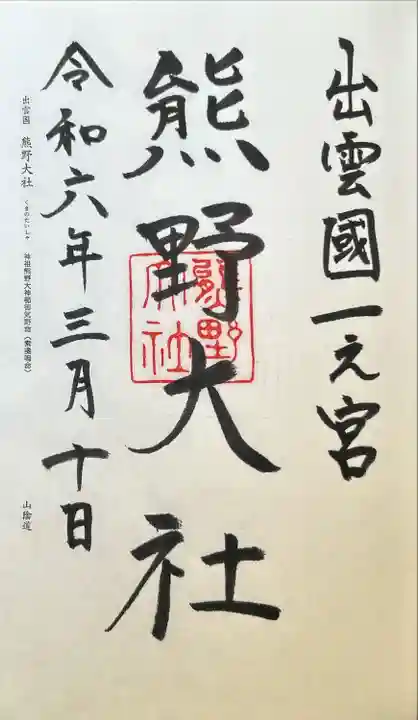 出雲國一之宮
熊野大社
熊野
大社
令和六年三月十日
出雲国 熊野大社 くまのたいしゃ 神祖熊野大神櫛御気野命（素戔嗚命）
山陰道